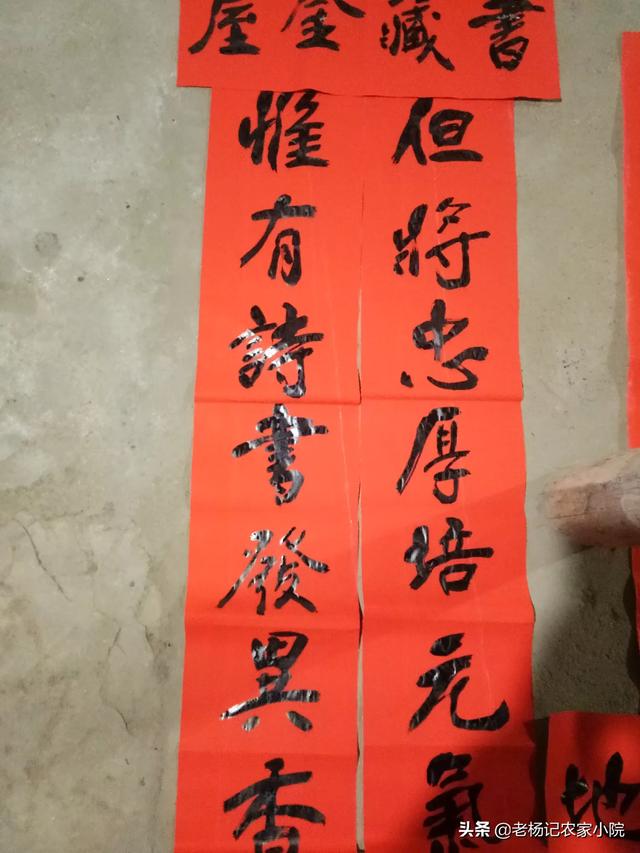 書藏金屋
但將忠厚培元氣
惟有詩書發異香
地
头条 @老杨记农家小院